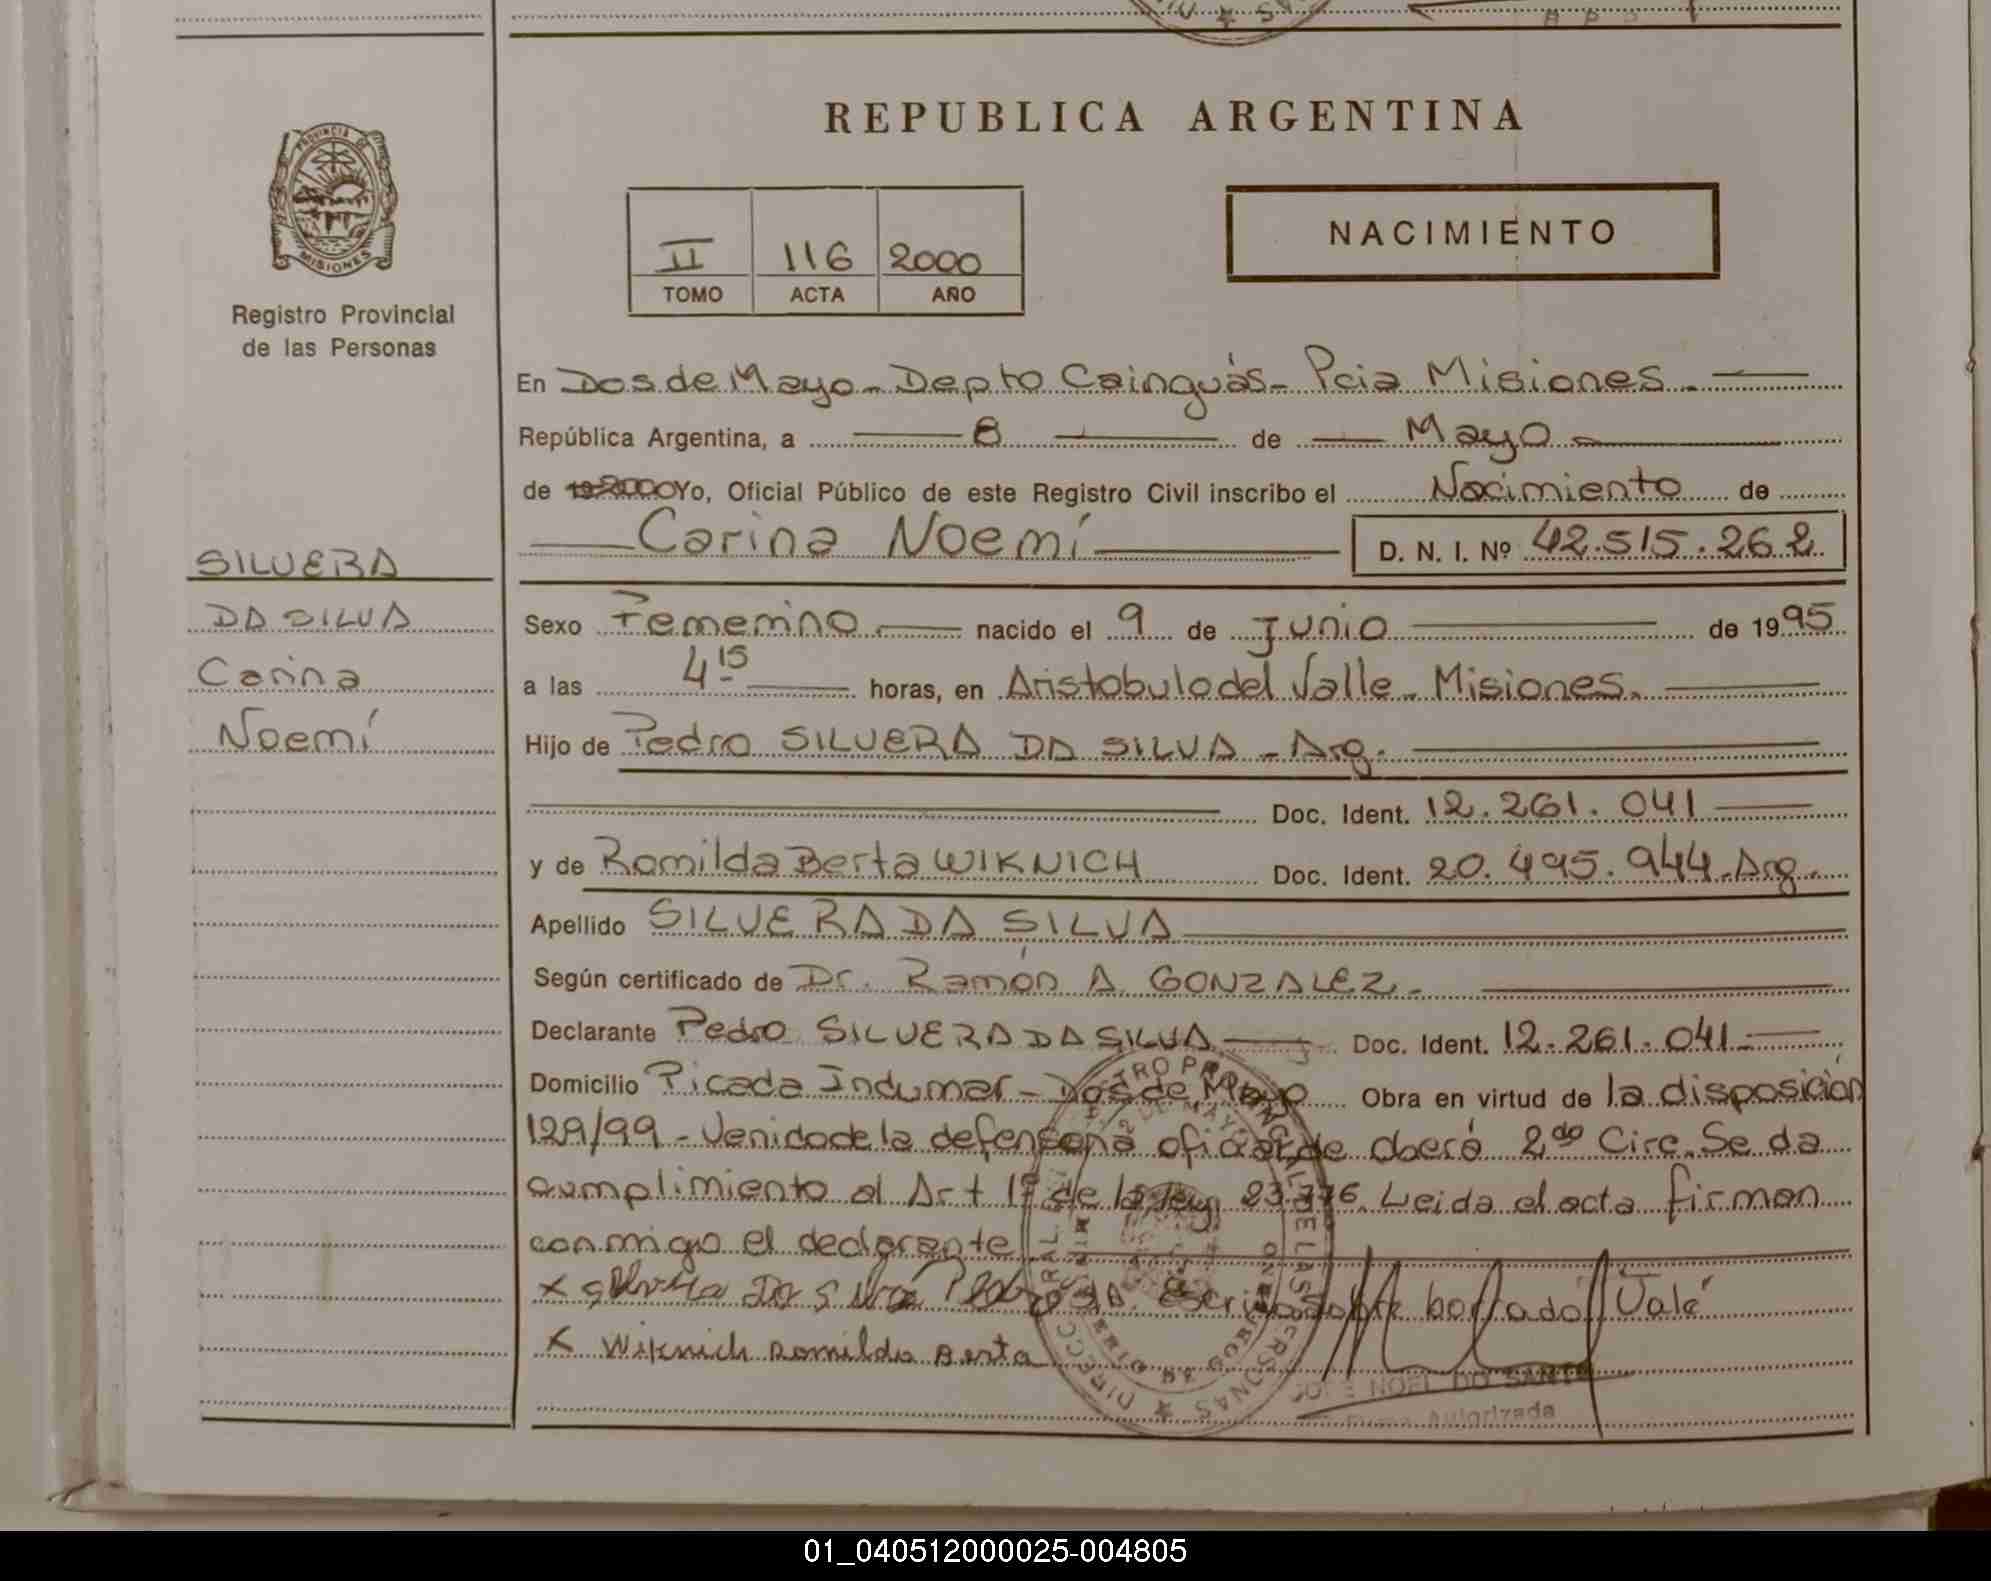 REPUBLICA ARGENTINA
PROVINCIA DE
MISIONES
Registro Provincial
de las Personas
NACIMIENTO
II 116 2000
TOMO ACTA AÑO
En Dos de Mayo - Depto Cainguás - Pcia Misiones.
República Argentina, a 8 de Mayo
de 2000 Yo, Oficial Público de este Registro Civil inscribo el Nacimiento de
Carina Noemí D. N. I. Nº 42.515.262
SILVERA
DA SILVA
Carina
Noemí
Sexo Femenino nacido el 9 de Junio de 1995
a las 4 15 horas, en Aristobulo del Valle - Misiones.
Hijo de Pedro SILVERA DA SILVA - Arg.
Doc. Ident. 12.261.041
y de Romilda Berta WIKNICH Doc. Ident. 20.495.944 - Arg.
Apellido SILVERA DA SILVA
Según certificado de Dr. Ramón A. GONZALEZ -
Declarante Pedro SILVERA DA SILVA Doc. Ident. 12.261.041
Domicilio Picada Indumar - Dos de Mayo Obra en virtud de la disposición
129/99 - Venido de la defensoria oficial de Oberá 2do Circ. Se da
cumplimiento al Art 1º de la ley 23.776. Leida el acta firman
conmigo el declarante
x Silvera Da Silva Escrito sobre borrado Vale
x Wiknich Romilda Berta
Firma Autorizada
01_040512000025-004805